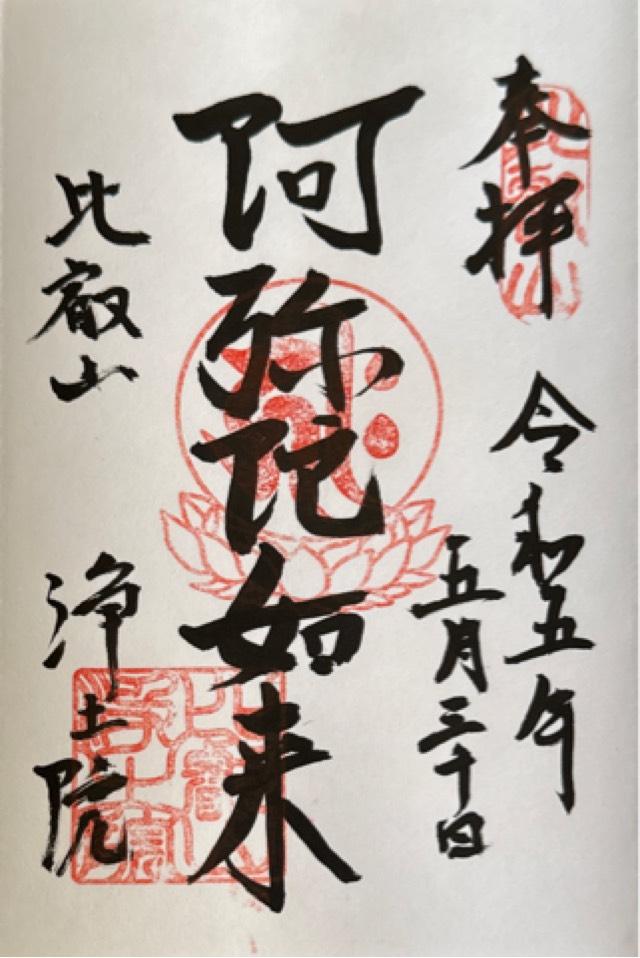 奉拝
令和五年
五月三十日
阿弥陀如来
比叡山
浄土院